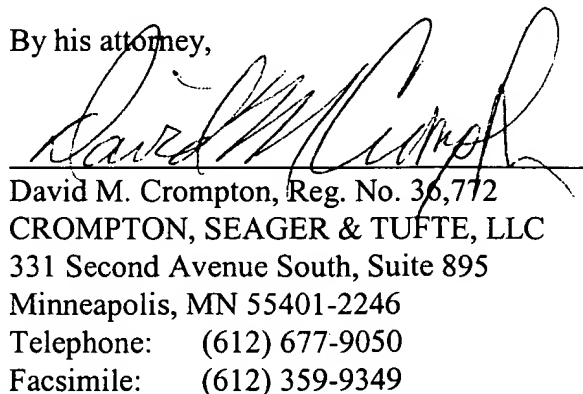 By his attorney,
David M Crompton
David M. Crompton, Reg. No. 36,772
CROMPTON, SEAGER & TUFTE, LLC
331 Second Avenue South, Suite 895
Minneapolis, MN 55401-2246
Telephone: (612) 677-9050
Facsimile: (612) 359-9349